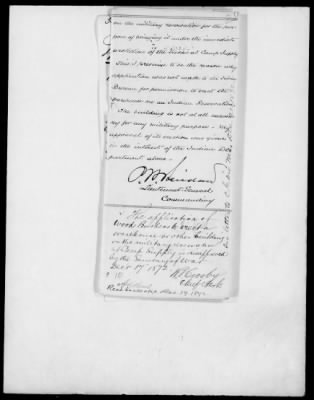 on the military reservation for the pur-
pose of bringing it under the immediate
protection of the Troops at Camp Supply
This I presume to be the reason why
application was not made to the Indian
Bureau for permission to erect the
warehouse on an Indian Reservation.
The building is not at all necessary
for any military purpose. My
approval of its erection was given
in the interest of the Indian De-
partment alone.
P. H. Sheridan
Lieutenant General
Commanding
The application of
to erect a
warehouse or other building
on the military reservation
of Camp Supply is disapproved
by the Secretary of War
Dec 17 1872
Crosby
Chief Clerk